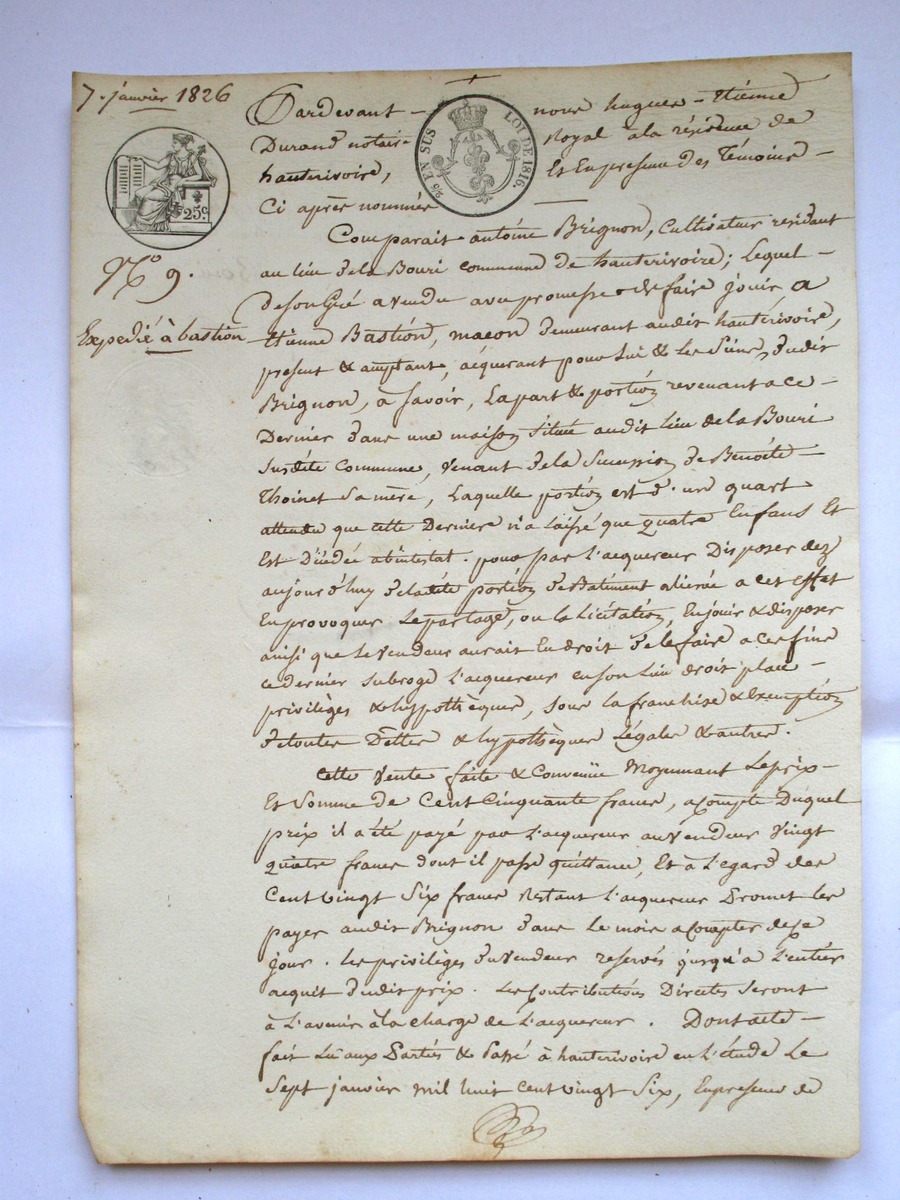 7. janvier 1826
25c
2/5 EN SUS LOI DE 1816.
N° 9.
Expedié à bastion
Pardevant nous hugues Etienne
Durand notaire Royal à la résidence de
hauterivoire, Et En presence des Témoins
Ci après nommés
Comparait antoine Brignon, Cultivateur residant
au lieu de la Bouri commune de hauterivoire; Lequel
de son Gré a vendu avec promesse de faire jouir a
Etienne Bastion, maçon demeurant audit hauterivoire,
present & acceptant, acquerant pour Lui & les Siens, dudit
Brignon, à Savoir, La part & portion revenant a ce
Dernier dans une maison Située audit Lieu de la Bouri
Susdite Commune, venant de la Succession de Benoite
Thoinet Sa mère, Laquelle portion est d'un quart
attendu que cette Derniere n'a Laissé que quatre Enfans Et
Est Décédée abintestat. pour par l'acquereur Disposer dez
aujourd'huy de ladite portion de Batiment aliené a cet effet
En provoquer Le partage, ou la Licitation, En jouir & disposer
ainsi que Le vendeur aurait En droit de le faire a ces fins
ce dernier subroge L'acquereur en son Lieu droit place
privilèges & hypothèques, sous la franchise & Exemption
de toutes Dettes & hypothèques Légales & autres.
Cette Vente faite & Convenüe Moyennant Le prix
Et Somme de Cent Cinquante francs, a compte Duquel
prix il a été payé par L'acquereur au Vendeur Vingt
quatre francs dont il passe quittance, Et à L'egard des
Cent vingt Six francs Restant L'acquereur Promet les
payer audit Brignon dans Le mois a compter de ce
jour. Les privilèges du Vendeur reservés jusqu'à L'entier
acquit dudit prix. Les Contributions Directes Seront
à L'avenir à la Charge de L'acquereur. Dont acte
fait Lu aux Parties & Passé à hauterivoire en L'étude Le
Sept janvier mil huit Cent vingt Six, En presence de